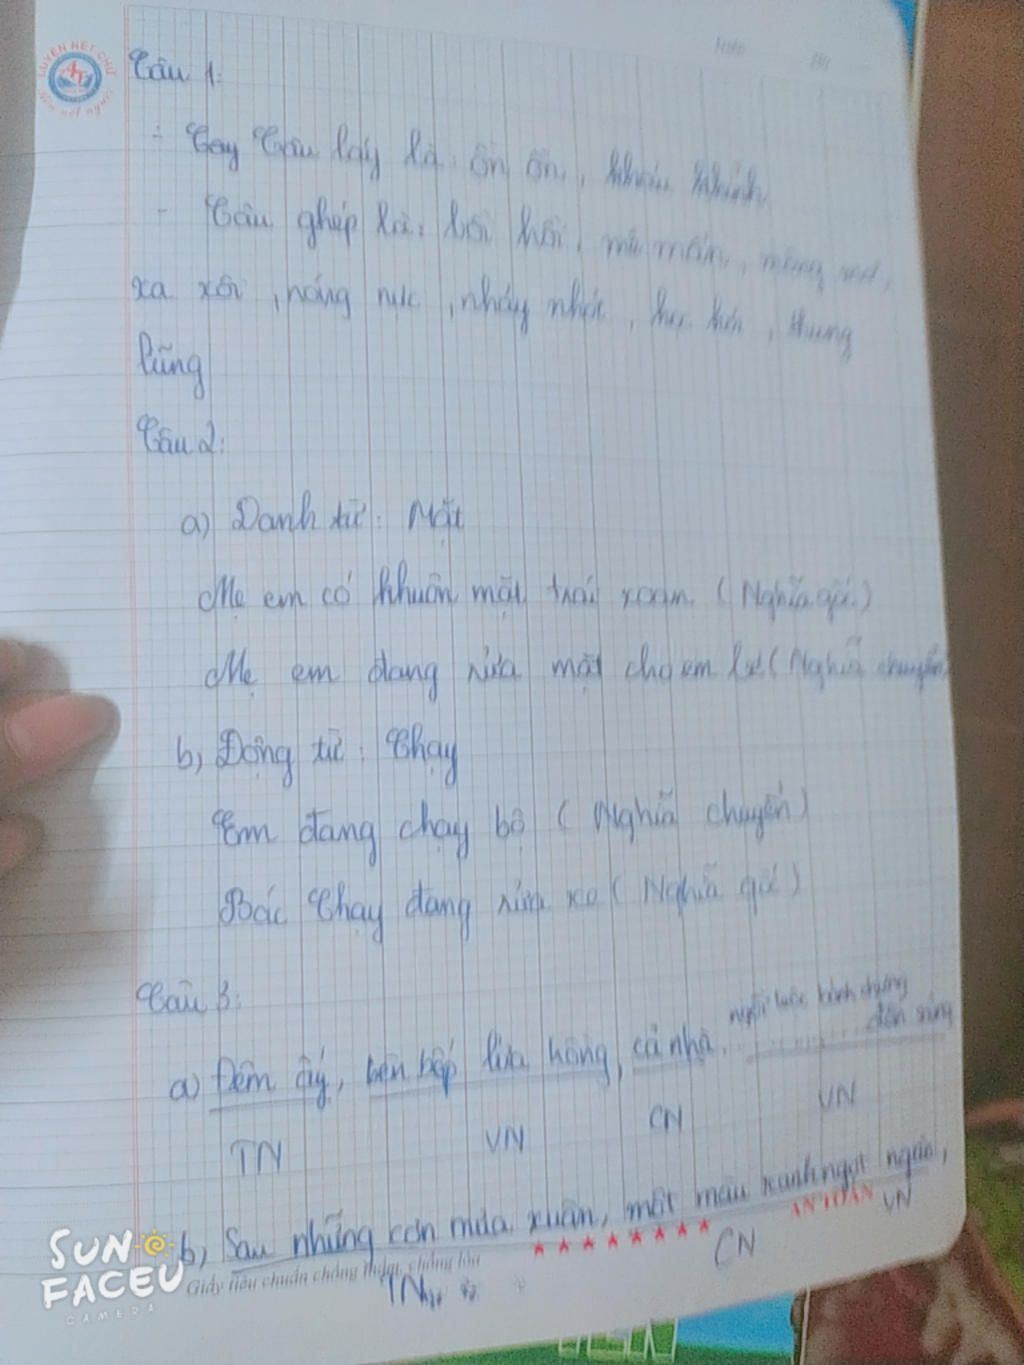 LUYỆN NÉT CHỮ
Rèn nết người
Câu 1:
láy là: ồn ồn,
- Câu ghép là: bồi hồi, mơ màng,
xa xôi, nóng nực, nhảy nhót, thung
lũng
Câu 2:
a) Danh từ: Mặt
Mẹ em có khuôn mặt trái xoan (Nghĩa gốc)
Mẹ em đang rửa mặt cho em (Nghĩa chuyển
b) Động từ: Chạy
Em đang chạy bộ (Nghĩa chuyển)
Bác Chạy đang xe (Nghĩa gốc)
Câu 3:
ngồi luộc bánh chưng
đến sáng
a) Đêm ấy, bên bếp lửa hồng, cả nhà
TN VN CN VN
b) Sau những cơn mưa xuân, một màu xanh ngọt ngào,
TN CN VN
AN TOÀN
Giấy tiêu chuẩn chống thấm, chống lóa
SUN
FACEU
CAMERA